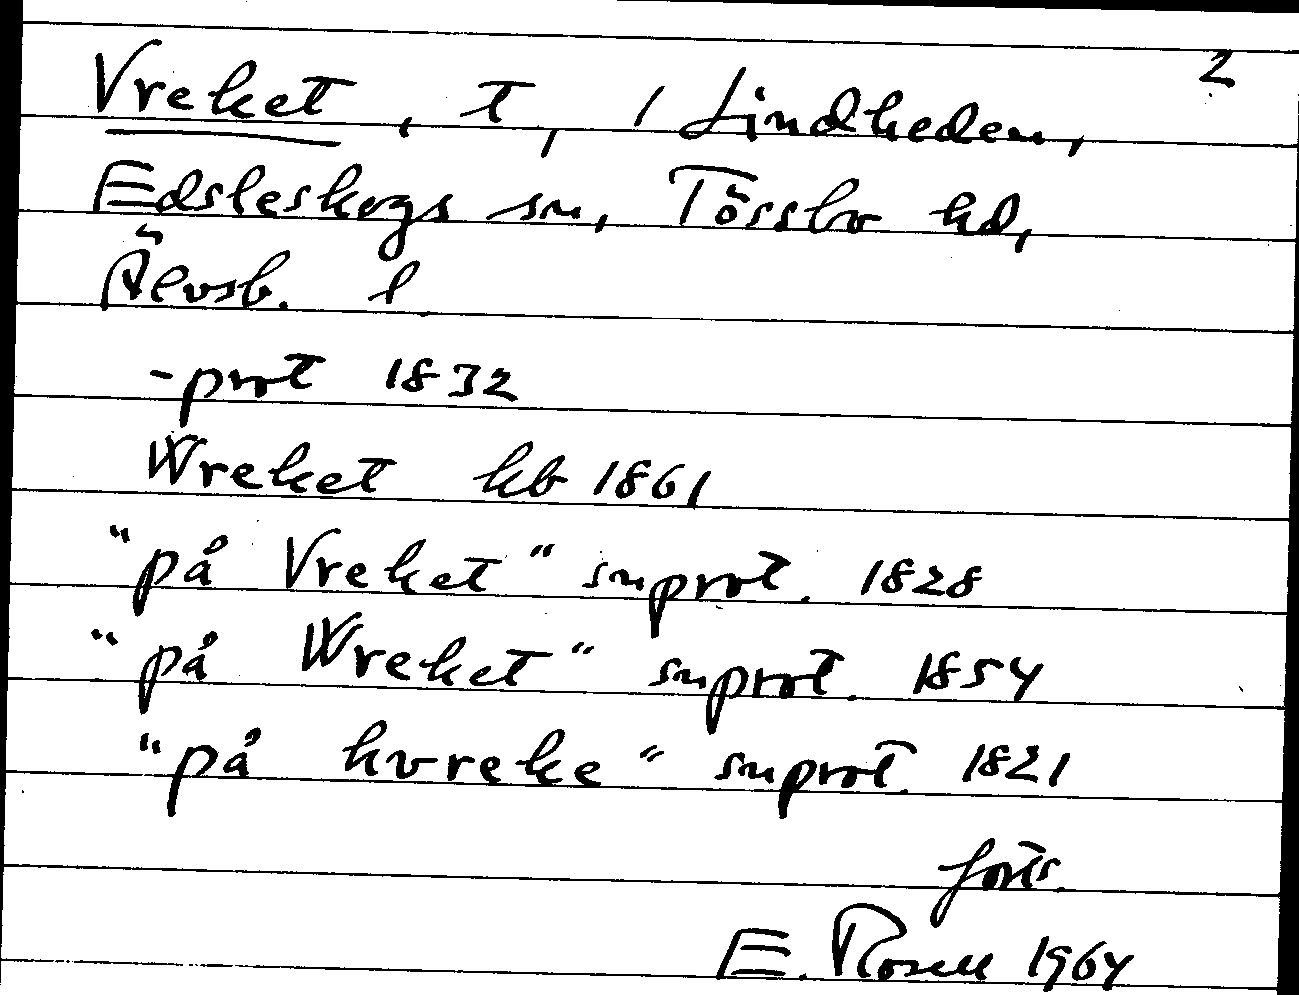 2
Vreket, t, / Lindheden,
Edsleskogs sn, Tössbo hd,
Älvsb. l.
-prot 1832
Wreket hb 1861
"på Vreket" snprot. 1828
"på Wreket" snprot. 1854
"på hvreke" snprot. 1821
forts.
E. Rosell 1964